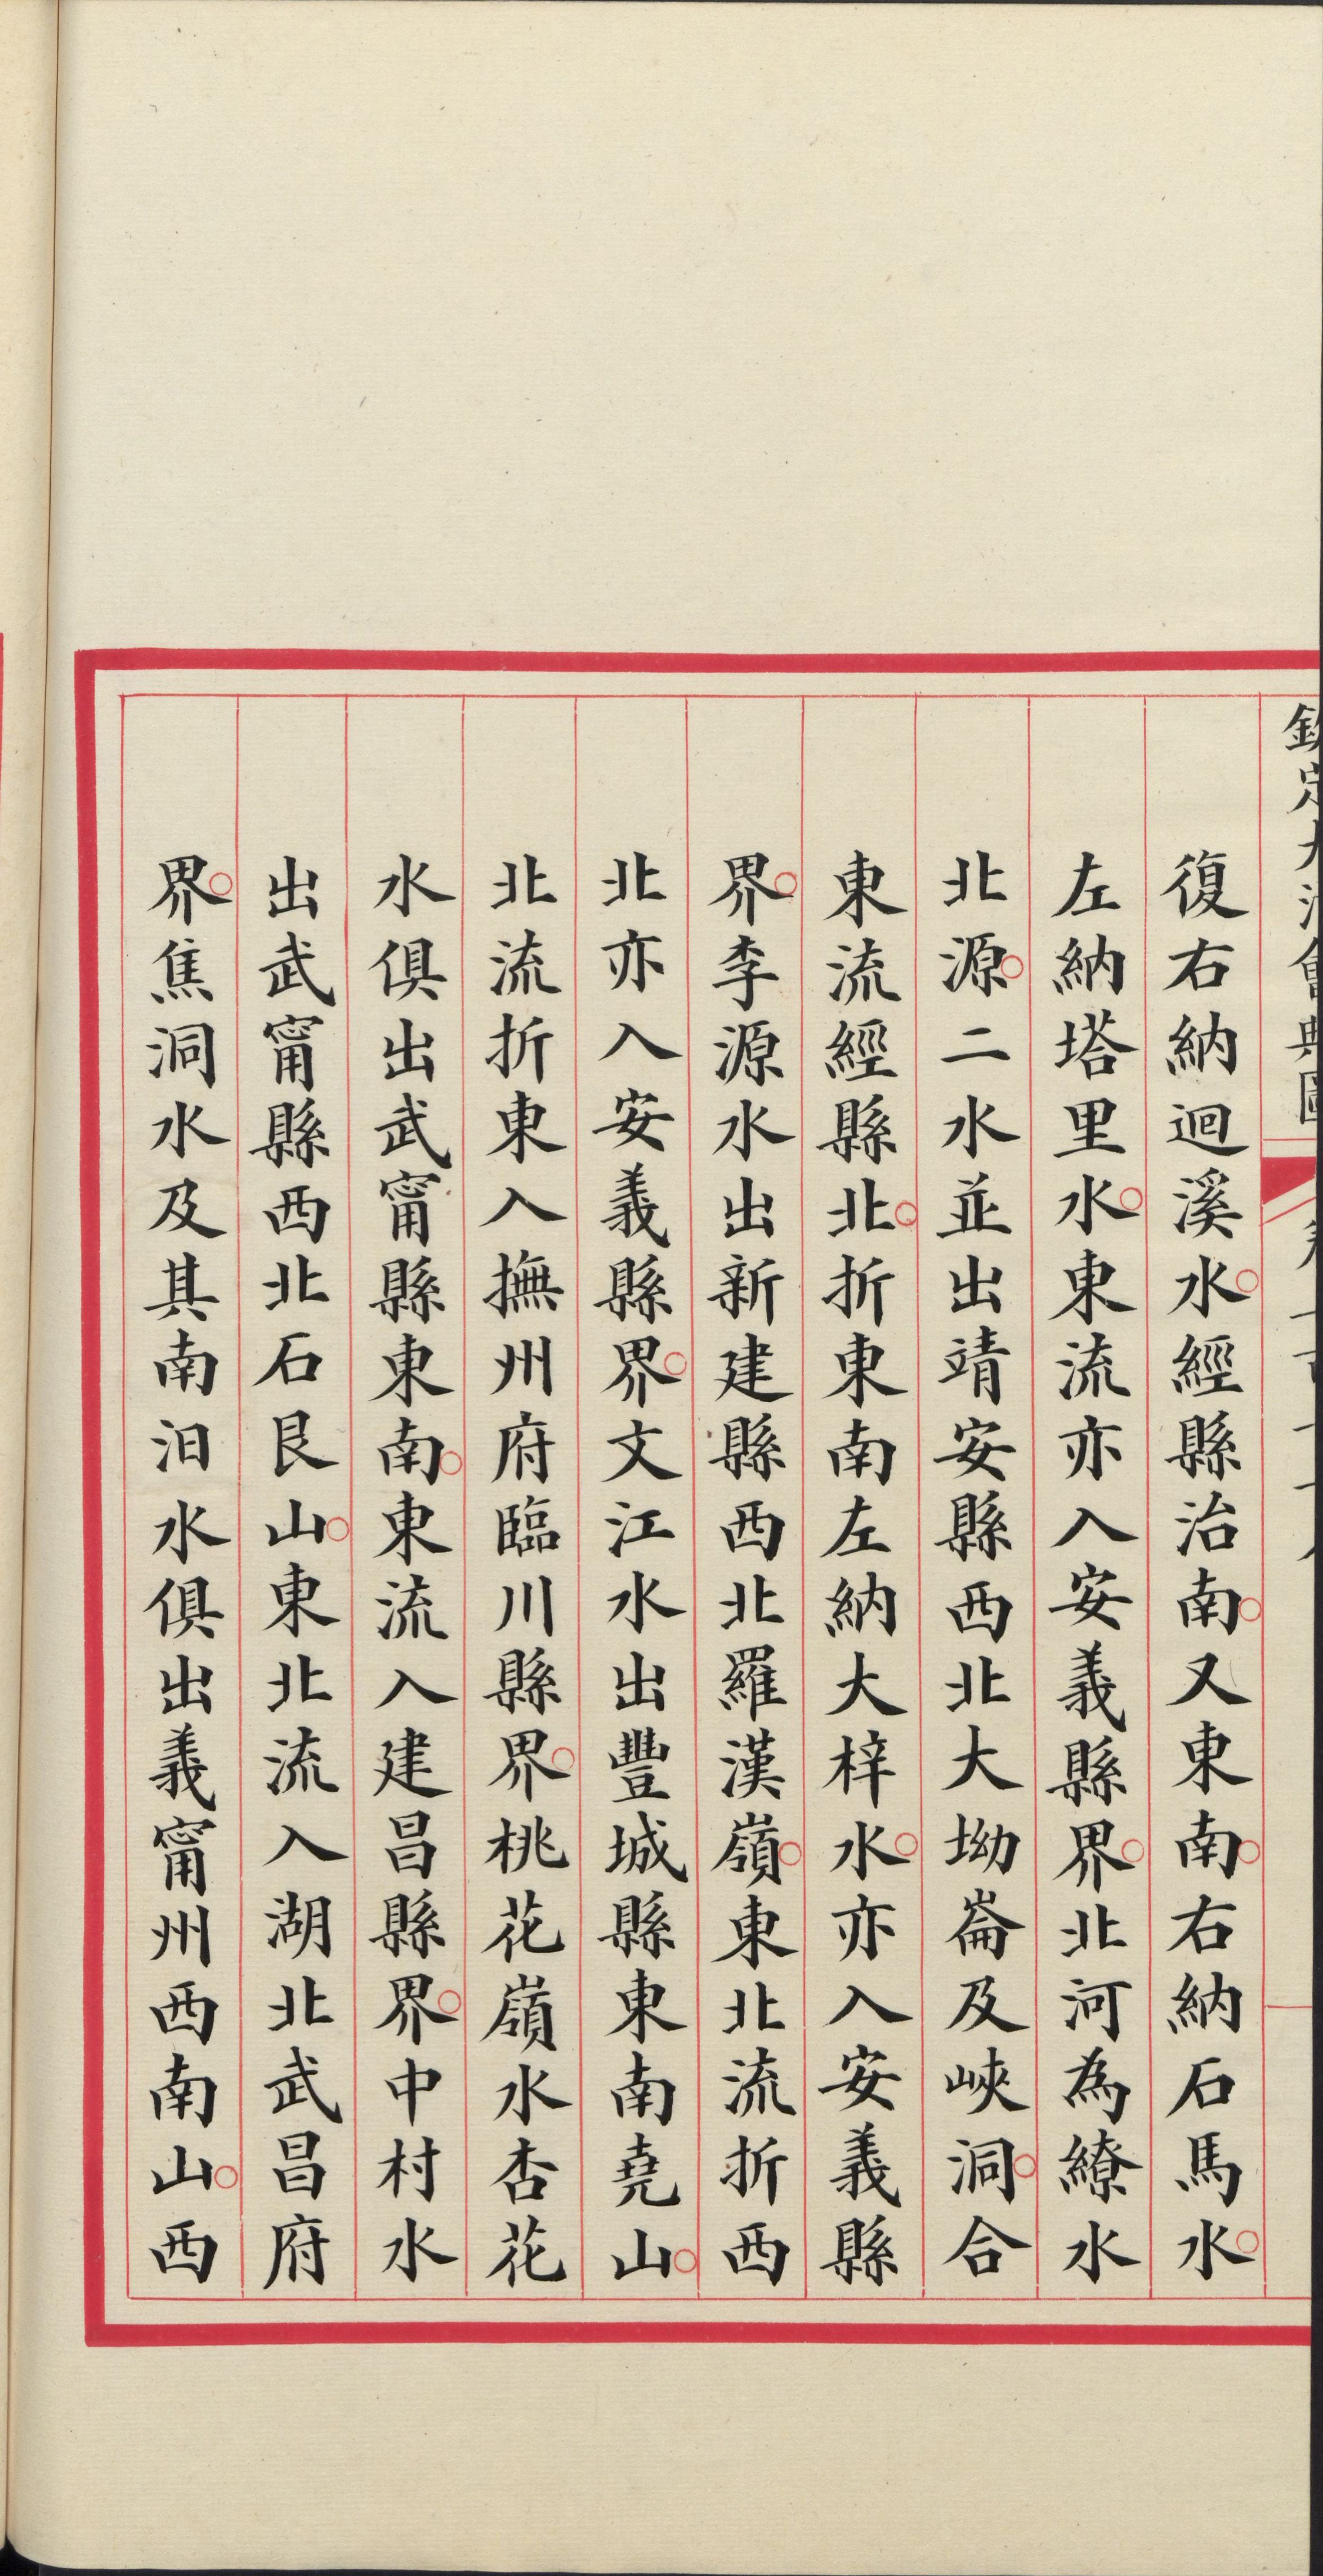 欽定大清會典圖
復右納迴溪水。經縣治南。又東南。右納石馬水。
左納塔里水。東流亦入安義縣界。北河為繚水
北源。二水並出靖安縣西北大坳崙及峽洞。合
東流經縣北。折東南左納大梓水。亦入安義縣
界。李源水出新建縣西北羅漢嶺。東北流折西
北亦入安義縣界。文江水出豐城縣東南堯山。
北流折東入撫州府臨川縣界。桃花嶺水杏花
水俱出武甯縣東南。東流入建昌縣界。中村水
出武甯縣西北石艮山。東北流入湖北武昌府
界。焦洞水及其南汨水俱出義甯州西南山。西